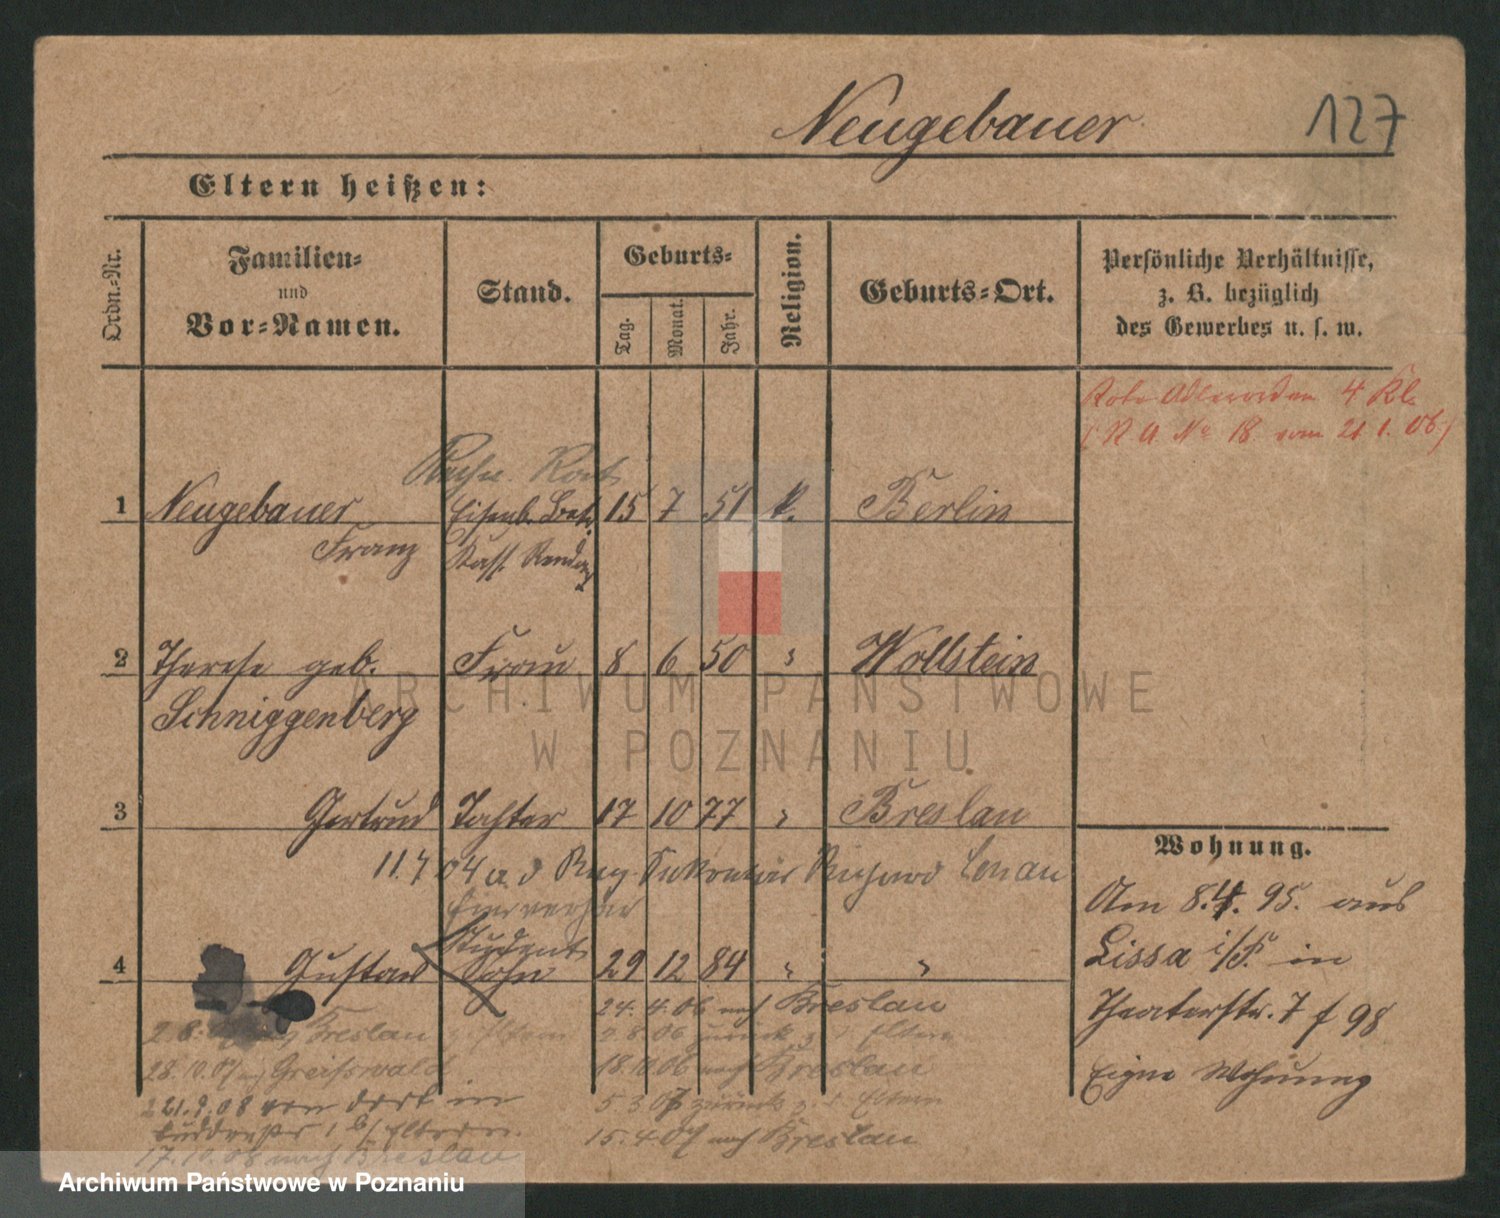 Neugebauer 127
Eltern heißen:
Ordn.-Nr.
Familien-
und
Vor-Namen.
Stand.
Geburts-
Tag.
Monat.
Jahr.
Religion.
Geburts-Ort.
Persönliche Verhältnisse,
z. B. bezüglich
des Gewerbes u. s. w.
Rote Adlerorden 4 Kl.
(R A. No 18 vom 21.1.06)
Rechn. Rat
1 Neugebauer Eisenb. Betr. 15 7 51 k. Berlin
Franz Kass. Rendant
2 Therese geb. Frau 8 6 50 " Wollstein
Schniggenberg
3 Gertrud Tochter 17 10 77 " Breslau
11.7 04 a. d Reg. Sekretär Richard
Student
4 Gustav Sohn 29 12 84 " "
24. 4. 06 nach Breslau
Breslau z. Eltern 2.8.06 zurück z. Eltern
28.10.07 n. Greifswald 18.10.06 nach Breslau
21.9.08 von dort in 5.3.07 zurück z. d. Eltern
15.4.07 nach Breslau
17.10.08 nach Breslau
Wohnung.
Am 8.4. 95. aus
Lissa i/P. in
Theaterstr. 7 f 98
Eigne Wohnung
ARCHIWUM PAŃSTWOWE
W POZNANIU
Archiwum Państwowe w Poznaniu